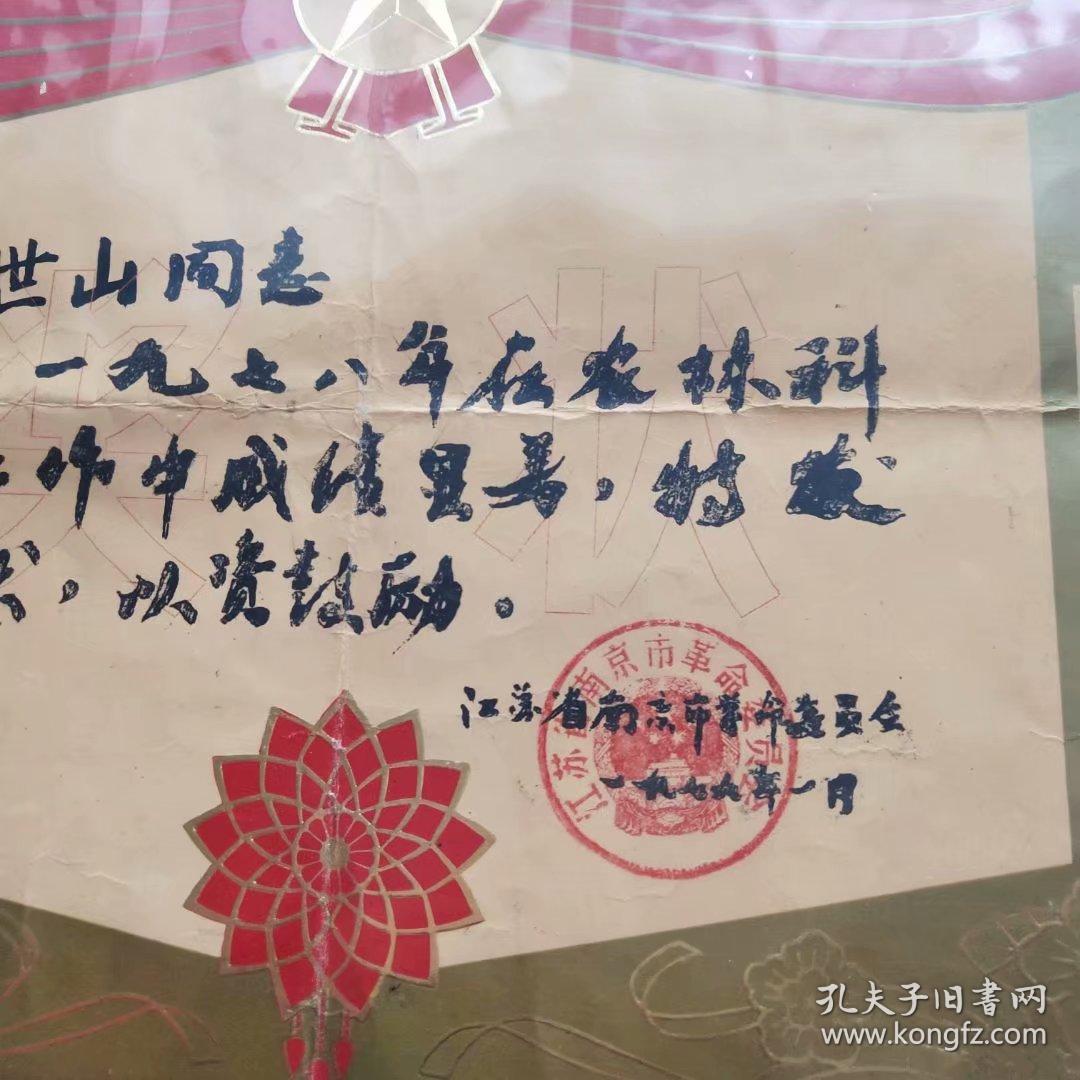 世山同志
一九七八年在农林科
工作中成绩显著,特发
状,以资鼓励。
奖状
江苏省南京市革命委员会
江苏省南京市革命委员会
一九七九年一月
孔夫子旧書网
www.kongfz.com